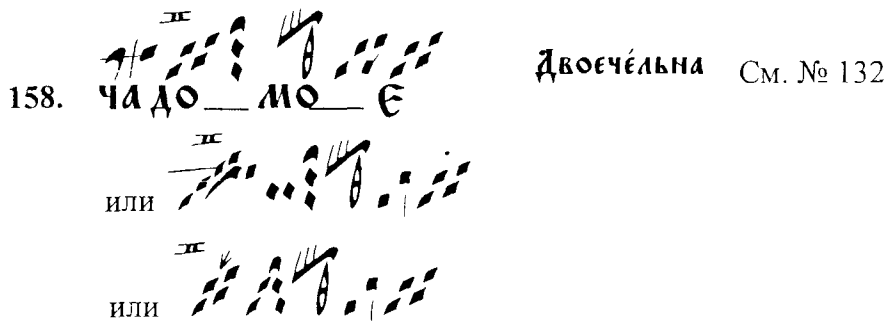 158. ЧАДО__ МО__ Є Двоече́льна См. № 132
или
или